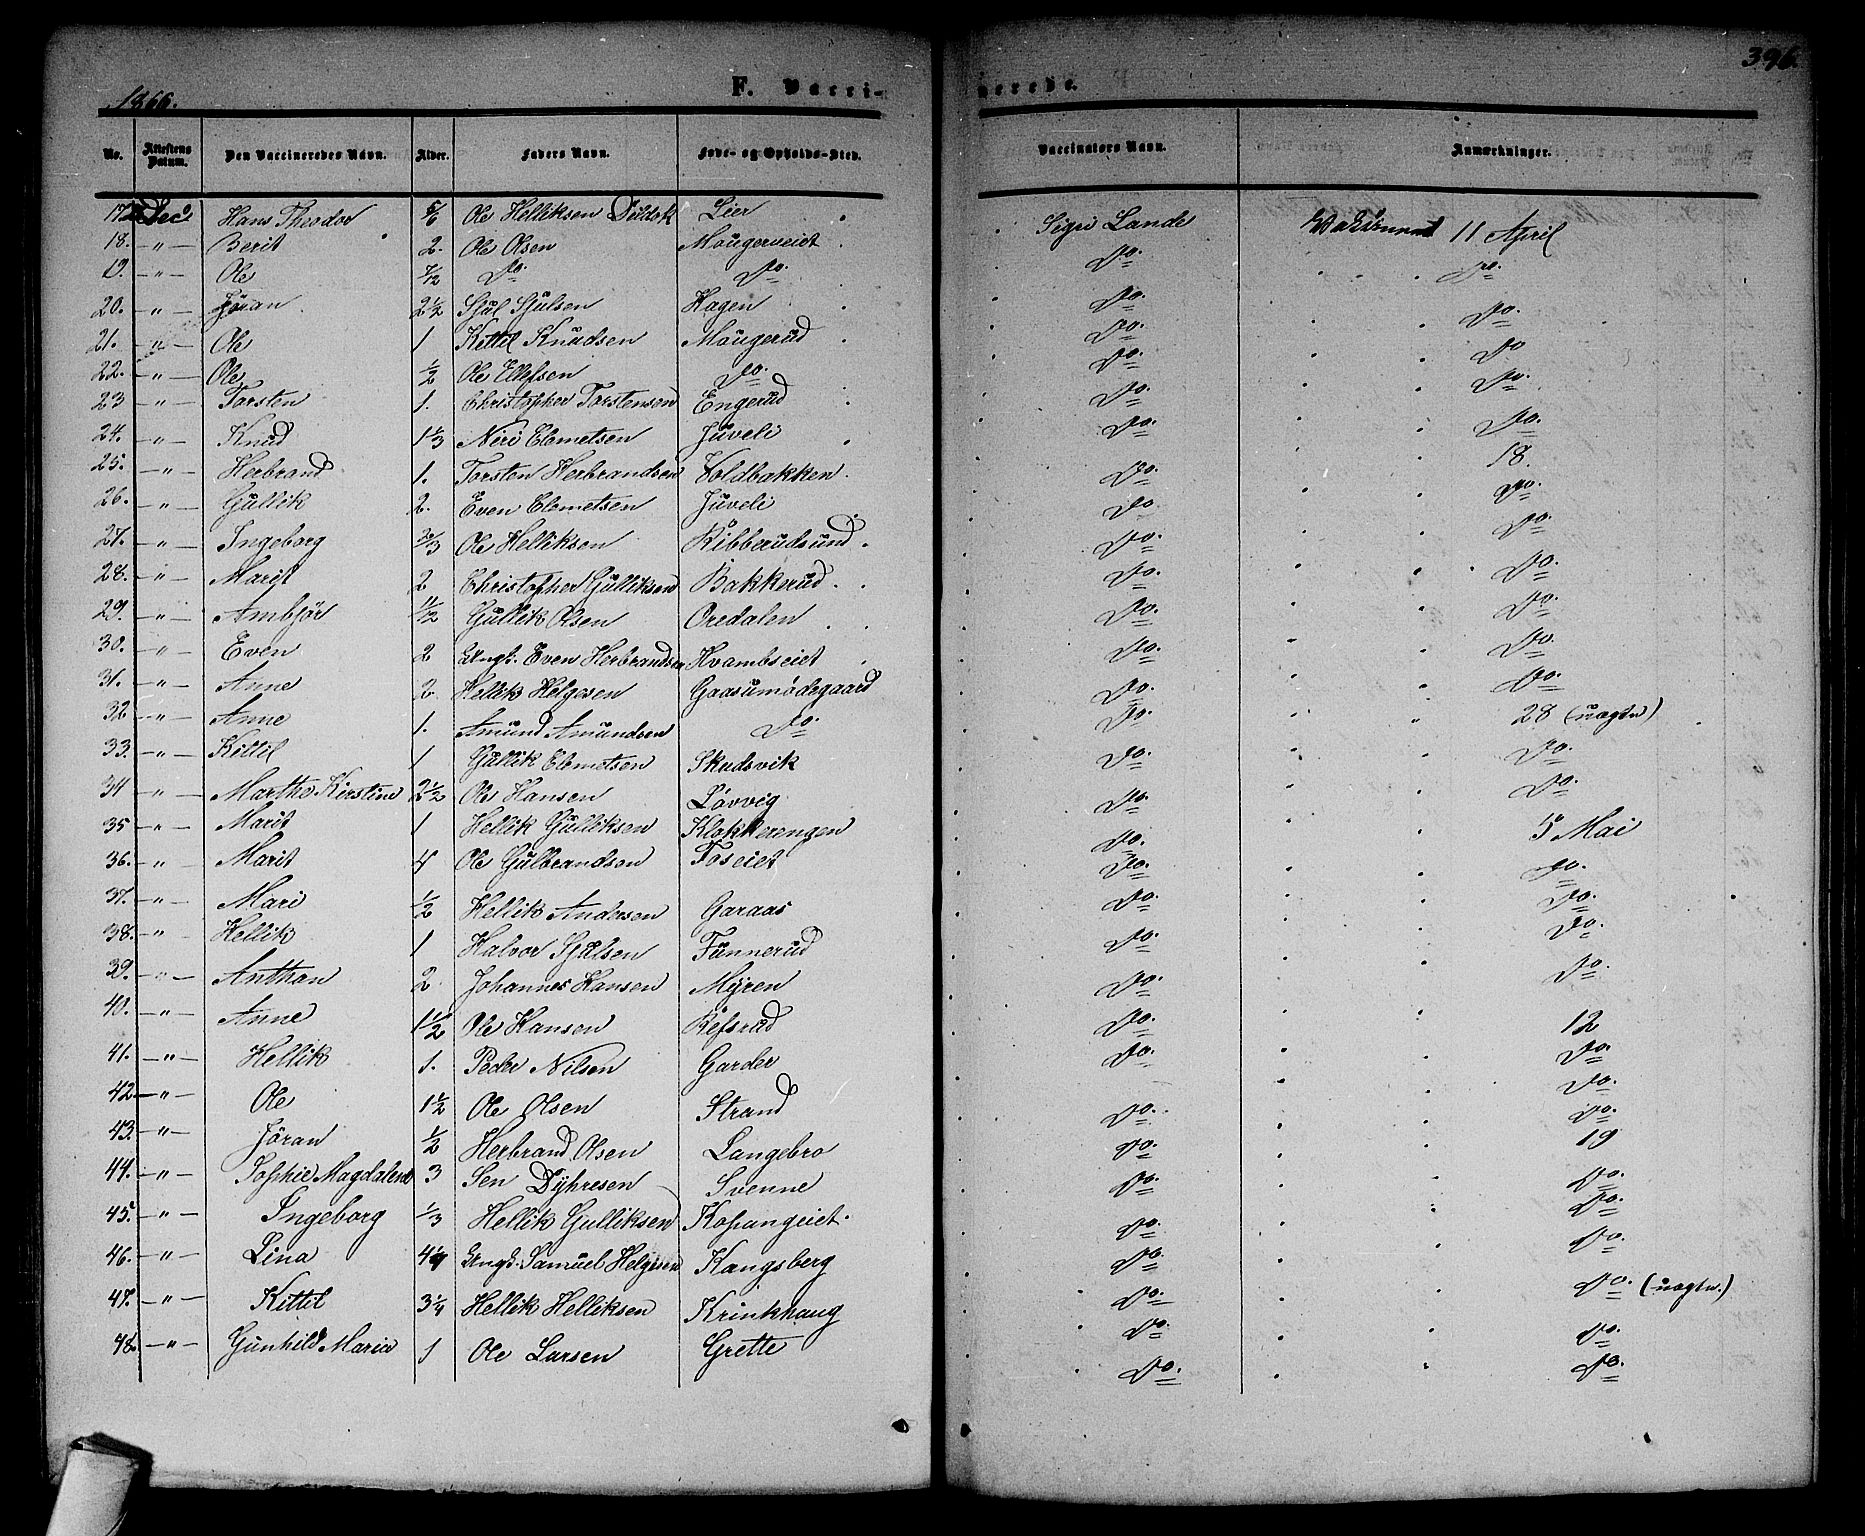 396.
1866.
F. Vacci-
nerede.
No. Attestens Datum. Den Vaccineredes Navn. Alder. Faders Navn. Føde- og Opholds-Sted. Vaccinators Navn. Anmærkninger.
17 Dec Hans Theodor 5/6 Ole Helliksen Lier Sigri Lande 11 April
18. -"- Berit 2. Ole Olsen Mougerveiet Do. Do.
19. -"- Ole 7/12 Do. Do. Do. Do.
20. -"- Jöran 2 1/2 Sjul Sjulsen Hagen Do. Do.
21. -"- Ole 1 Kittil Knudsen Mougerud Do. Do
22. -"- Ole 1/2 Ole Ellefsen Do. Do. Do.
23 -"- Torsten 1. Christopher Torstensen Engerud Do. Do.
24. -"- Knud 1 1/3 Niri Clemetsen Juveli Do. 18.
25. -"- Herbrand 1. Torsten Herbrandsen Voldbakken. Do. Do.
26. -"- Gullik 2. Even Clemetsen Juveli Do Do.
27. -"- Ingeborg 2/3 Ole Helliksen Ribberudsund. Do. Do.
28. -"- Marit 2. Christopher Gulliksen Bakkerud. Do. Do.
29. -"- Ambjör 1/2 Gullik Olsen Oredalen Do. Do.
30. -"- Even 2 Ungk. Even Herbrandsen Kvambseiet Do. Do.
31. -"- Anne 2. Hellik Helgesen Gaasumødegaard Do. 28 (uægte)
32 -"- Anne 1. Amund Amundsen Do. Do. Do.
33. -"- Kittil 1 Gullik Clemetsen Skudsvik Do. Do.
34 -"- Marthe Kirstine 2 1/2 Ole Hansen Lövvig Do. 5 Mai
35 -"- Marit 1 Hellik Gulliksen Klokkerengen Do. Do.
36. -"- Marit 4 Ole Gulbrandsen Foseiet Do. Do.
37. -"- Mari 1/2 Hellik Andersen Garaas Do. Do.
38. -"- Hellik 1 Halvor Sjulsen Funnerud Do. Do.
39. -"- Anthon 2. Johannes Hansen Myren Do. 12
40. -"- Anne 1 1/2 Ole Hansen Refsrud Do. Do.
41. -"- Hellik 1. Peder Nilsen Garder Do. Do.
42 -"- Ole 1 1/2 Ole Olsen Strand Do. Do.
43. -"- Jöran 1/2 Herbrand Olsen Langebro Do. 19
44. -"- Sophie Magdalene 3 Sen Dyhresen Svenne Do. Do.
45. -"- Ingeborg 1/3 Hellik Gulliksen Kopangeiet. Do. Do.
46. -"- Lina Ungk. Samuel Helgesen Kongsberg Do. Do. (uægte.)
47. -"- Kittil 3 1/4 Hellik Helliksen Krinkhaug Do. Do.
48. -"- Gunhild Maria 1 Ole Larsen Grette Do. Do.